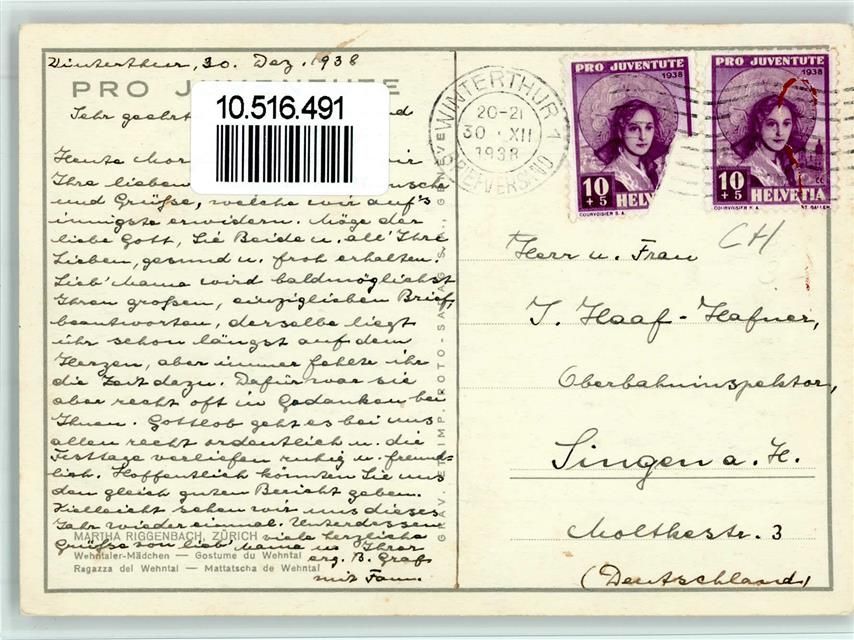 Winterthur, 30. Dez. 1938
PRO JUVENTUTE
Sehr geehrt
10.516.491
Heute Mor
Ihre lieben nsche
und Grüße, welche wir auf's
innigste erwidern. Möge der
liebe Gott, Sie Beide u. all' Ihre
Lieben, gesund u. froh erhalten.
Lieb' Mama wird baldmöglichst
Ihren großen, einziglieben Brief,
beantworten, derselbe liegt
ihr schon längst auf dem
Herzen, aber immer fehlte ihr
die Zeit dazu. Dafür war sie
aber recht oft in Gedanken bei
Ihnen. Gottlob geht es bei uns
allen recht ordentlich u. die
Festtage verliefen ruhig u. freund-
lich. Hoffentlich könnten Sie uns
den gleich guten Bericht geben.
Vielleicht sehen wir uns dieses
Jahr wieder einmal. Unterdessen
viele herzliche
Grüße von lieb' Mama u. Ihrer
erg. B. Graf
mit Fam.
MARTHA RIGGENBACH, ZÜRICH
Wehntaler-Mädchen — Costume du Wehntal
Ragazza del Wehntal — Mattatscha de Wehntal
WINTERTHUR 1
20-21
30. XII
1938
BRIEFVERSAND
PRO JUVENTUTE
1938
10
+5
HELV
COURVOISIER S.A.
PRO JUVENTUTE
1938
10
+5
HELVETIA
COURVOISIER S.A.
CH
Herr u. Frau
J. Haaf-Hafner,
Oberbahninspektor,
Singen a. H.
Moltkestr. 3
(Deutschland)